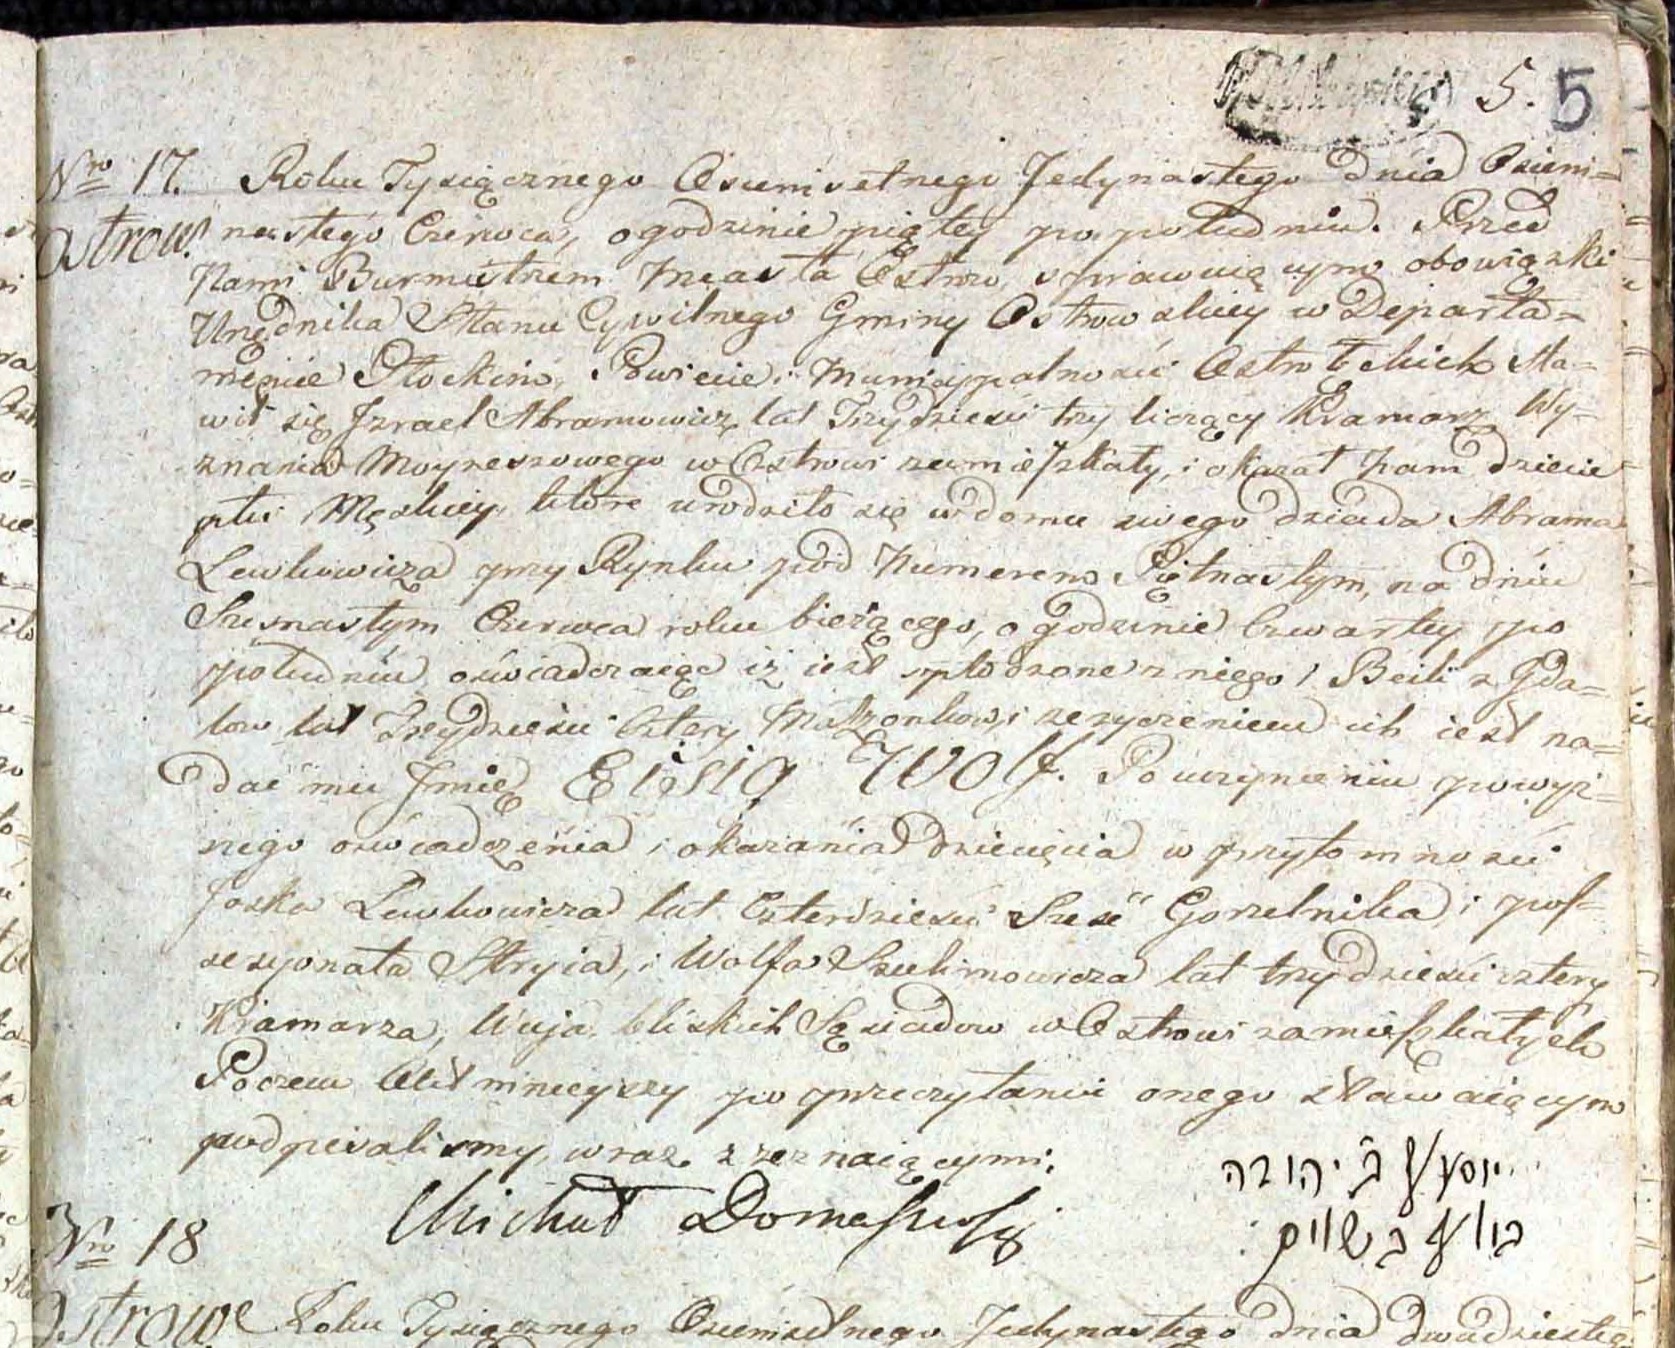 5. 5
Nro 17. Roku Tysiącznego Osiemsetnego Jedynastego dnia Osiem=
Ostrow. nastego Czerwca, o godzinie piątey po południu. Przed
Nami Burmistrzem Miasta Ostrow, sprawuiącym obowiązki
Urzędnika Stanu Cywilnego Gminy Ostrowskiey w Departa=
mencie Płockim, Powiecie i Municypalności Ostrołckich sta=
wił się Izrael Abramowicz lat Trzydzieści try liczący Kramarz Wy=
znania Moyzeszowego w Ostrowi zamieszkały, i okazał nam dziecie
płci Męskiey, które urodziło się w domu swego dziada Abrama
Lewkowicza przy Rynku pod Numerem Piętnastym, na dniu
Szesnastym Czerwca roku bieżącego, o godzinie czwartey po
południu, oświadczaiąc iż iest spłodzone z niego i Beili z Gda=
low lat Trzydzieści cztery Małżonkow, i ze życzeniem ich iest na=
dać mu Jmię Eisig Wolf. Po uczynieniu powyż=
szego oświadczenia i okazania dziecięcia w przytomności
Joska Lewkowicza lat Czterdzieści Sześć Gorzelnika i pos=
sesyonata Stryia, i Wolfa Szulimowicza lat trzydzieści cztery
Kramarza, Wuja, bliskich Sąsiadow w Ostrowi zamieszkałych
Poczem Akt ninieyszy po przeczytaniu onego stawaiącym
podpisaliśmy, wraz z zeznaiącymi.
יוסף ב יהודה
Michał Domaszewski
וואלף ב שלום
Nro 18
Ostrow. Roku Tysiącznego Osiemsetnego Jedynastego dnia dwudziesteg